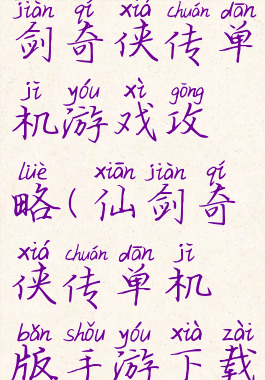 jiàn qí xiá chuán dān
剑奇侠传单
jī yóu xì gōng
机游戏攻
lüè xiān jiàn qí
略(仙剑奇
xiá chuán dān jī
侠传单机
bǎn shǒu yóu xià zài
版手游下载